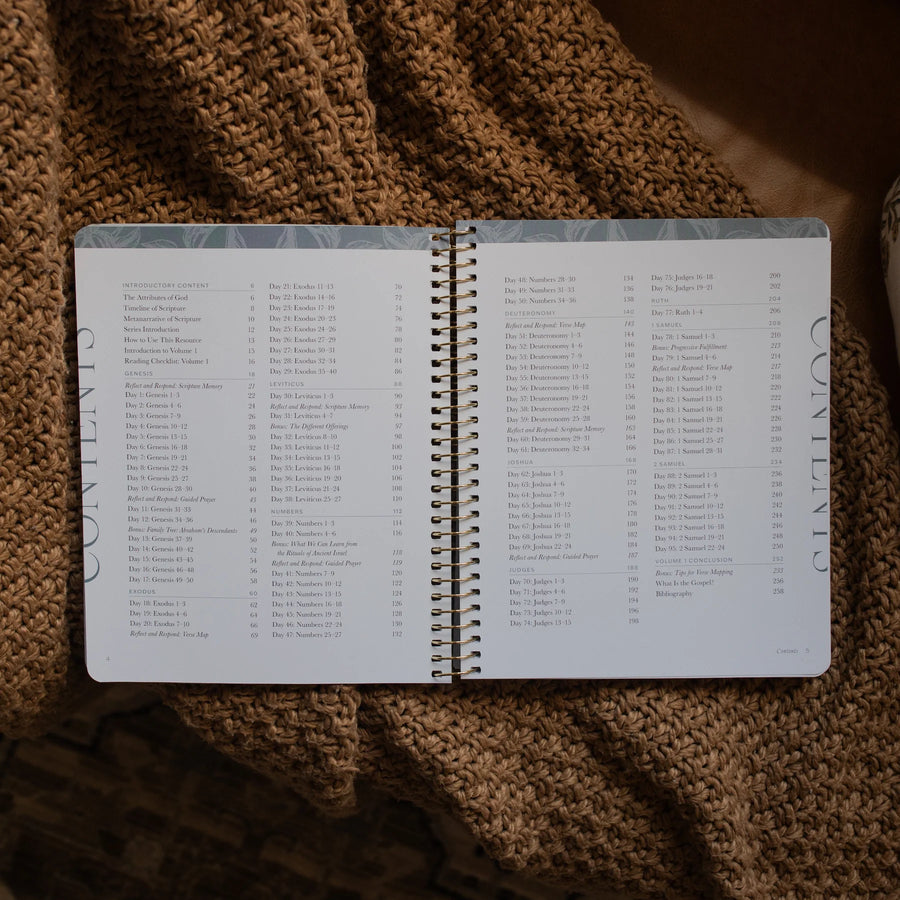 CONTENTS
INTRODUCTORY CONTENT 6
The Attributes of God 6
Timeline of Scripture 8
Metanarrative of Scripture 10
Series Introduction 12
How to Use This Resource 13
Introduction to Volume 1 15
Reading Checklist: Volume 1 16
GENESIS 18
Reflect and Respond: Scripture Memory 21
Day 1: Genesis 1–3 22
Day 2: Genesis 4–6 24
Day 3: Genesis 7–9 26
Day 4: Genesis 10–12 28
Day 5: Genesis 13–15 30
Day 6: Genesis 16–18 32
Day 7: Genesis 19–21 34
Day 8: Genesis 22–24 36
Day 9: Genesis 25–27 38
Day 10: Genesis 28–30 40
Reflect and Respond: Guided Prayer 43
Day 11: Genesis 31–33 44
Day 12: Genesis 34–36 46
Bonus: Family Tree: Abraham's Descendants 49
Day 13: Genesis 37–39 50
Day 14: Genesis 40–42 52
Day 15: Genesis 43–45 54
Day 16: Genesis 46–48 56
Day 17: Genesis 49–50 58
EXODUS 60
Day 18: Exodus 1–3 62
Day 19: Exodus 4–6 64
Day 20: Exodus 7–10 66
Reflect and Respond: Verse Map 69
Day 21: Exodus 11–13 70
Day 22: Exodus 14–16 72
Day 23: Exodus 17–19 74
Day 24: Exodus 20–23 76
Day 25: Exodus 24–26 78
Day 26: Exodus 27–29 80
Day 27: Exodus 30–31 82
Day 28: Exodus 32–34 84
Day 29: Exodus 35–40 86
LEVITICUS 88
Day 30: Leviticus 1–3 90
Reflect and Respond: Scripture Memory 93
Day 31: Leviticus 4–7 94
Bonus: The Different Offerings 97
Day 32: Leviticus 8–10 98
Day 33: Leviticus 11–12 100
Day 34: Leviticus 13–15 102
Day 35: Leviticus 16–18 104
Day 36: Leviticus 19–20 106
Day 37: Leviticus 21–24 108
Day 38: Leviticus 25–27 110
NUMBERS 112
Day 39: Numbers 1–3 114
Day 40: Numbers 4–6 116
Bonus: What We Can Learn from
the Rituals of Ancient Israel 118
Reflect and Respond: Guided Prayer 119
Day 41: Numbers 7–9 120
Day 42: Numbers 10–12 122
Day 43: Numbers 13–15 124
Day 44: Numbers 16–18 126
Day 45: Numbers 19–21 128
Day 46: Numbers 22–24 130
Day 47: Numbers 25–27 132
4
Day 48: Numbers 28–30 134
Day 49: Numbers 31–33 136
Day 50: Numbers 34–36 138
DEUTERONOMY 140
Reflect and Respond: Verse Map 143
Day 51: Deuteronomy 1–3 144
Day 52: Deuteronomy 4–6 146
Day 53: Deuteronomy 7–9 148
Day 54: Deuteronomy 10–12 150
Day 55: Deuteronomy 13–15 152
Day 56: Deuteronomy 16–18 154
Day 57: Deuteronomy 19–21 156
Day 58: Deuteronomy 22–24 158
Day 59: Deuteronomy 25–28 160
Reflect and Respond: Scripture Memory 163
Day 60: Deuteronomy 29–31 164
Day 61: Deuteronomy 32–34 166
JOSHUA 168
Day 62: Joshua 1–3 170
Day 63: Joshua 4–6 172
Day 64: Joshua 7–9 174
Day 65: Joshua 10–12 176
Day 66: Joshua 13–15 178
Day 67: Joshua 16–18 180
Day 68: Joshua 19–21 182
Day 69: Joshua 22–24 184
Reflect and Respond: Guided Prayer 187
JUDGES 188
Day 70: Judges 1–3 190
Day 71: Judges 4–6 192
Day 72: Judges 7–9 194
Day 73: Judges 10–12 196
Day 74: Judges 13–15 198
Day 75: Judges 16–18 200
Day 76: Judges 19–21 202
RUTH 204
Day 77: Ruth 1–4 206
1 SAMUEL 208
Day 78: 1 Samuel 1–3 210
Bonus: Progressive Fulfillment 213
Day 79: 1 Samuel 4–6 214
Reflect and Respond: Verse Map 217
Day 80: 1 Samuel 7–9 218
Day 81: 1 Samuel 10–12 220
Day 82: 1 Samuel 13–15 222
Day 83: 1 Samuel 16–18 224
Day 84: 1 Samuel 19–21 226
Day 85: 1 Samuel 22–24 228
Day 86: 1 Samuel 25–27 230
Day 87: 1 Samuel 28–31 232
2 SAMUEL 234
Day 88: 2 Samuel 1–3 236
Day 89: 2 Samuel 4–6 238
Day 90: 2 Samuel 7–9 240
Day 91: 2 Samuel 10–12 242
Day 92: 2 Samuel 13–15 244
Day 93: 2 Samuel 16–18 246
Day 94: 2 Samuel 19–21 248
Day 95: 2 Samuel 22–24 250
VOLUME 1 CONCLUSION 252
Bonus: Tips for Verse Mapping 253
What Is the Gospel? 256
Bibliography 258
CONTENTS
Contents 5